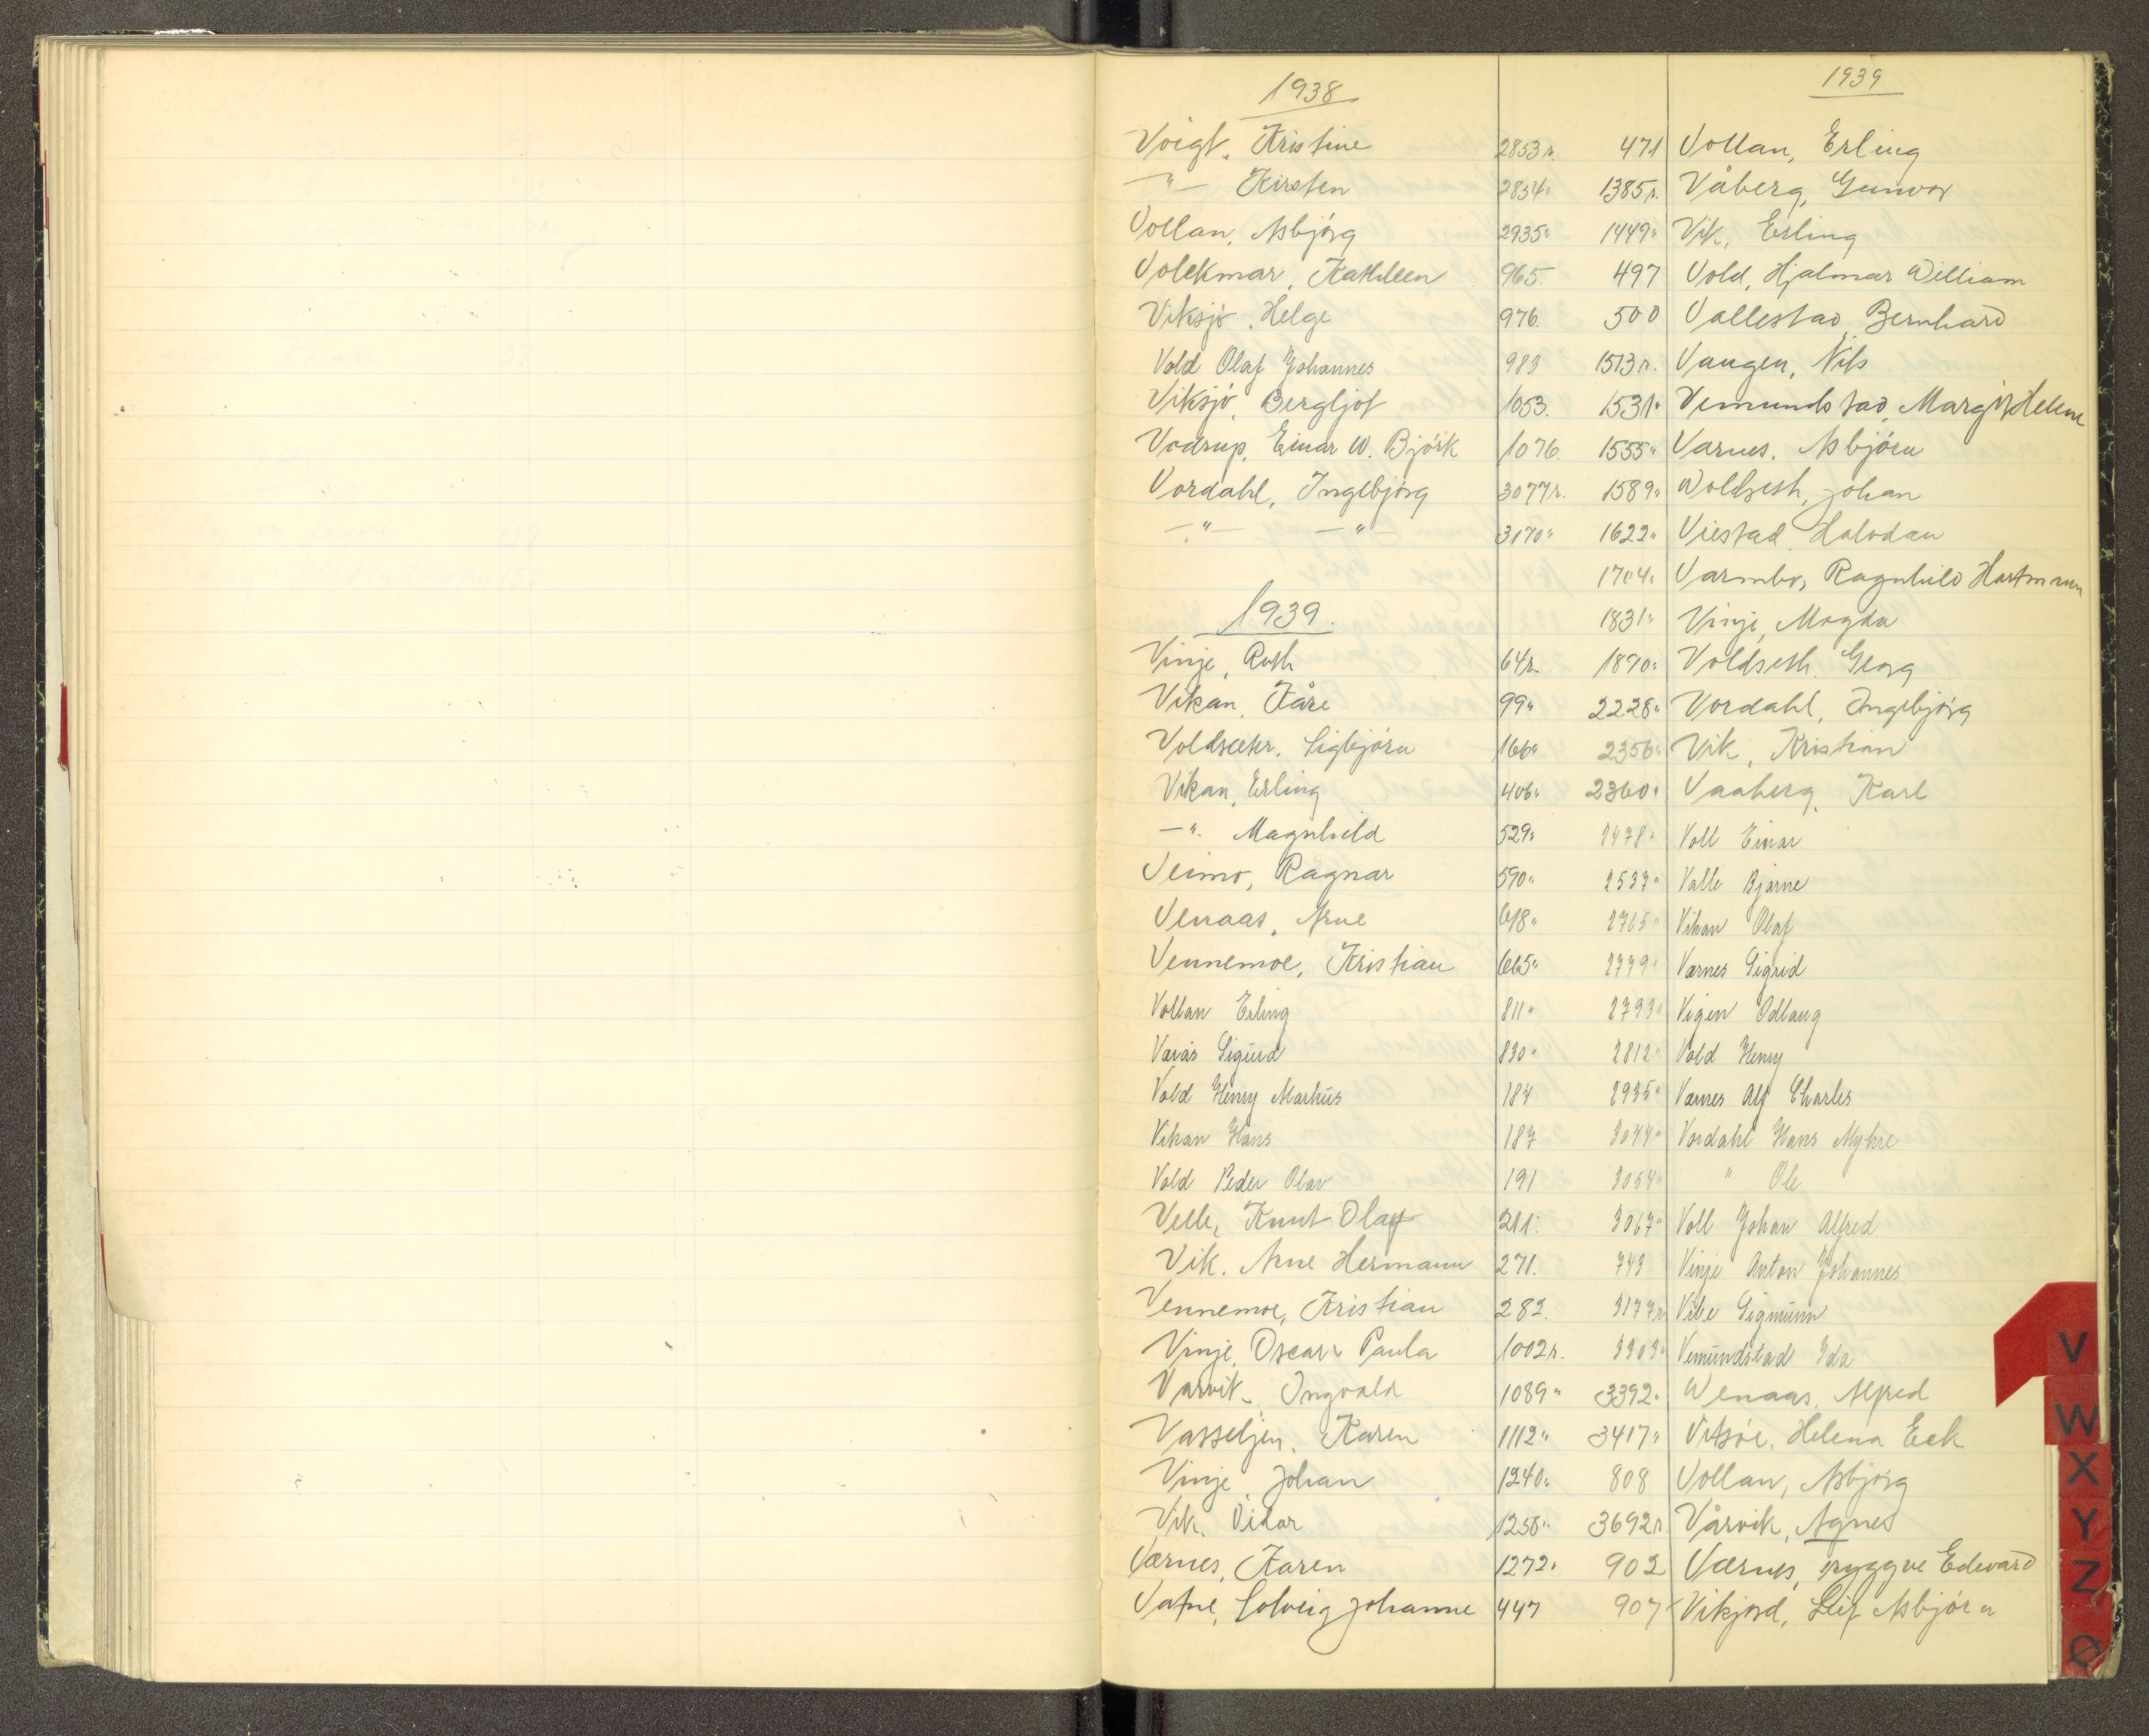 1938
Voigt, Kristine 2853 r.
—"— Kirsten 2854 "
Vollan, Asbjörg 2935 "
Volckmar, Kathleen 965.
Viksjö, Helge 976.
Vold Olaf Johannes 983
Viksjö, Bergljot 1053.
Vodrup, Einar W. Björk 1076.
Vordahl, Ingebjörg 3077 r.
—"— —"— 3170 "
1939.
Vinje, Ruth 64 r.
Vikan, Kåre 99 "
Voldsæter, Sigbjörn 166 "
Vikan, Erling 406 "
—". Magnhild 529 "
Veimo, Ragnar 590 "
Venaas, Arne 618 "
Vennemoe, Kristian 665 "
Vollan Erling 811 "
Varås Sigurd 830 "
Vold Henry Markus 184
Vikan Hans 187
Vold Peder Olav 191
Velle, Knut Olaf 211.
Vik. Arne Hermann 271.
Vennemoe, Kristian 282.
Vinje, Oscar & Paula 1002 r.
Varvik, Ingvald 1089 "
Vasseljen, Karen 1112 "
Vinje, Johan 1240 "
Vik, Vidar 1258 "
Værnes, Karen 1272 "
Vatne, Solveig Johanne 447
1939
471 Vollan, Erling
1385 r. Våberg, Gunvor
1449 " Vik, Erling
497 Vold, Hjalmar William
500 Vallestad, Bernhard
1513 r. Vaugen, Nils
1531 " Vemundstad, Margit Helene
1555 " Varnes, Asbjörn
1589 " Woldseth, Johan
1622 " Viestad Halvdan
1704 " Varmbo, Ragnhild Hartmann
1831 " Vinje, Magda
1890 " Voldseth, Georg
2228 " Vordahl, Ingebjörg
2356 " Vik, Kristian
2360 " Vaaberg, Karl
2478 " Voll Einar
2537 " Valle Bjarne
2765 " Vikan Olaf
2779 " Værnes Sigrid
2793 " Vigen Odlaug
2812 " Vold Henry
2935 " Værnes Alf Charles
3044 " Vordahl Hans Myhre
3054 " " Ole
3067 " Voll Johan Alfred
743 Vinje Anton Johannes
3177 r Vibe Sigmunn
3303 " Vemundstad Ida
3392 " Wenaas, Alfred
3417 " Vitsöe, Helena Eck
808 Vollan, Asbjörg
3692 r. Vårvik, Agnes
902 Værnes, Tryggve Edevard
907 Vikjord, Leif Asbjörn
V
W
X
Y
Z
Ø